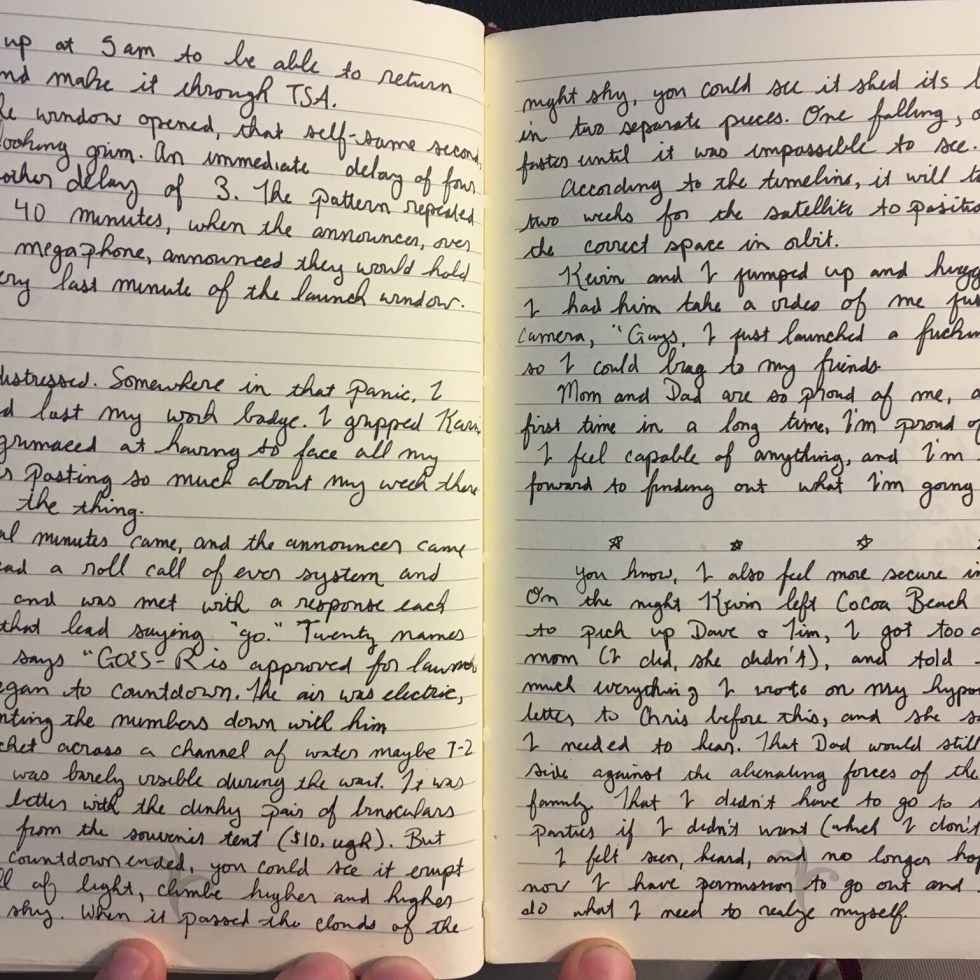 up at 5am to be able to return
nd make it through TSA.
window opened, that self-same second,
looking grim. An immediate delay of four
other delay of 3. The pattern repeated
40 minutes, when the announcer, over
megaphone, announced they would hold
ery last minute of the launch window.
distressed. Somewhere in that panic, I
d lost my work badge. I gripped
grimaced at having to face all my
s posting so much about my week there
the thing.
al minutes came, and the announcer came
ead a roll call of ever system and
and was met with a response each
that lead saying "go." Twenty names
says "GOES-R is approved for launch
egan to countdown. The air was electric,
nting the numbers down with him
cket across a channel of water maybe 1-2
was barely visible during the wait. It was
better with the dinky pair of binoculars
from the souvenir tent ($10, ugh). But
countdown ended, you could see it erupt
ll of light, climbe higher and higher
sky. When it passed the clouds of the
night sky, you could see it shed its
in two separate pieces. One falling,
faster until it was impossible to see.
According to the timeline, it will ta
two weeks for the satellite to positio
the correct space in orbit.
Kevin and I jumped up and hugg
I had him take a video of me
camera, "Guys, I just launched a fuckin
so I could brag to my friends.
Mom and Dad are so proud of me, a
first time in a long time, I'm proud of
I feel capable of anything, and I'm
forward to finding out what I'm going
☆ ☆ ☆
You know, I also feel more secure in
On the night Kevin left Cocoa Beach
to pick up Dave & Tim, I got too
mom (I did, she didn't), and told
much everything I wrote on my hypo
letter to Chris before this, and she s
I needed to hear. That Dad would still
side against the alienating forces of the
family. That I didn't have to go to
parties if I didn't want (which I don't
I felt seen, heard, and no longer
now I have permission to go out and
do what I need to realize myself.